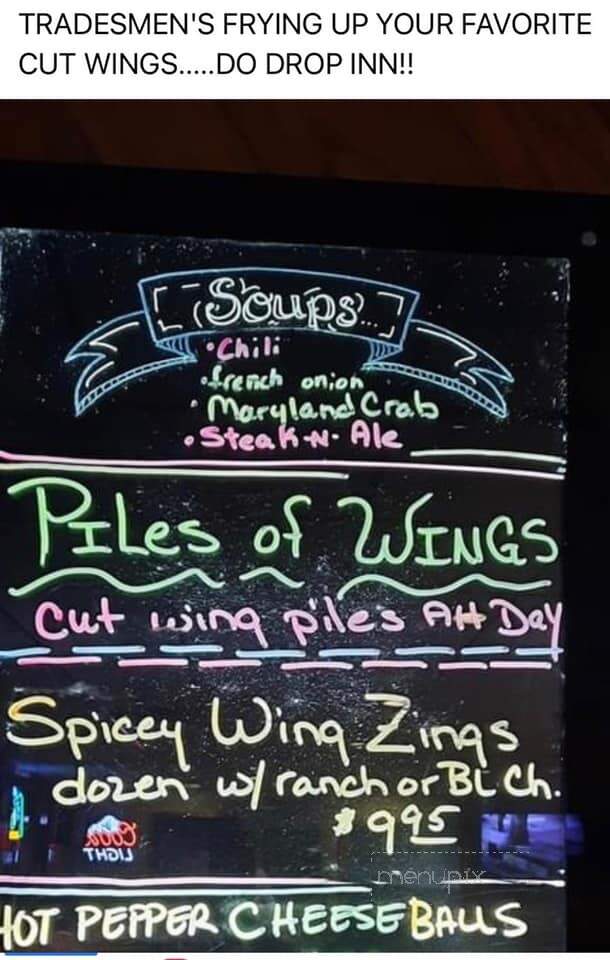 TRADESMEN'S FRYING UP YOUR FAVORITE
CUT WINGS.....DO DROP INN!!
Soups...
•Chili
•french onion
•Maryland Crab
•Steak-N-Ale
PILes of WINGS
Cut wing piles All Day
Spicey Wing-Zings
dozen w/ ranch or BL Ch.
$9.95
THGIJ
menupix
HOT PEPPER CHEESE BALLS